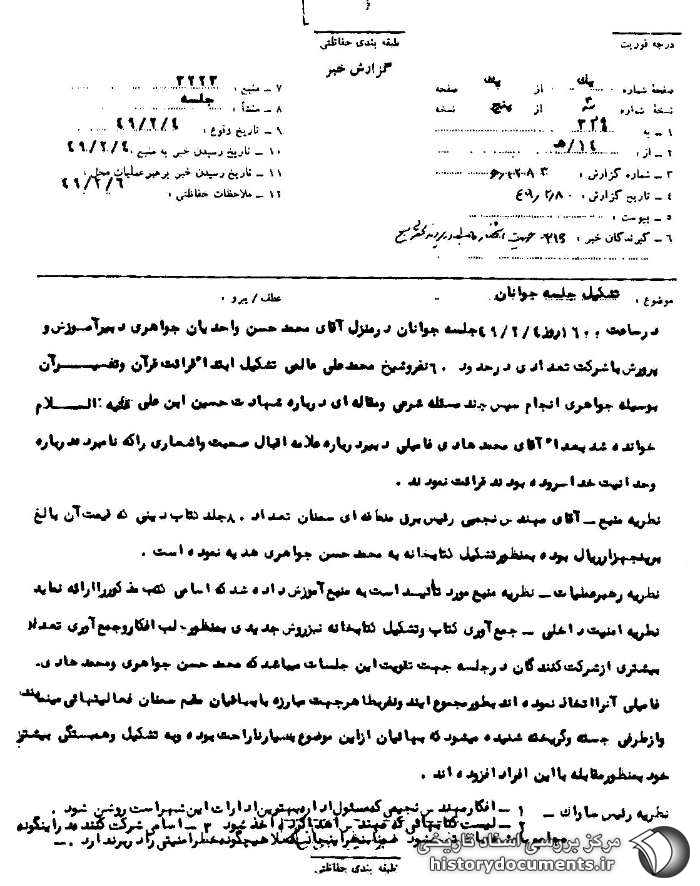 طبقه بندی حفاظتی
درجه فوریت
گزارش خبر
صفحهٔ شماره یک از یک صفحه
نسخهٔ شماره سه از پنج نسخه
۱ - به ۳۲۴
۲ - از : ۱۴/ه
۳ - شماره گزارش :
۴ - تاریخ گزارش :
۵ - پیوست :
۶ - گیرندگان خبر :
۷ - منبع : ۳۲۲۳
۸ - منشأ : جلسه
۹ - تاریخ وقوع : ۴۹/۲/۴
۱۰ - تاریخ رسیدن خبر به منبع : ۴۹/۲/۴
۱۱ - تاریخ رسیدن خبر برهبر عملیات محل : ۴۹/۲/۶
۱۲ - ملاحظات حفاظتی :
موضوع : تشکیل جلسه جوانان - عطف / پیرو :
در ساعت ۱۶۰۰ روز ۴۹/۲/۴ جلسه جوانان در منزل آقای محمد حسن واحدیان جواهری دبیر آموزش و
پرورش با شرکت تعدادی در حدود ۶۰ نفر و شیخ محمد علی عالمی تشکیل ابتدا قرائت قرآن و تفسیر قرآن
بوسیله جواهری انجام سپس چند مسئله شرعی و مقاله ای درباره شهادت حسین ابن علی علیه السلام
خوانده شد بعدا آقای محمد هادی فامیلی دبیر درباره علامه اقبال صحبت و اشعاری را که نامبرده درباره
وحدانیت خدا سروده بودند قرائت نمودند .
نظریه منبع - آقای مهندس نجمی رئیس برق منطقه ای سمنان تعداد ۸۰ جلد کتاب دینی که قیمت آن بالغ
بر پنجهزار ریال بوده بمنظور تشکیل کتابخانه به محمد حسن جواهری هدیه نموده است .
نظریه رهبر عملیات - نظریه منبع مورد تأئید است به منبع آموزش داده شد که اسامی کتب مذکور را ارائه نماید
نظریه امنیت داخلی - جمع آوری کتاب و تشکیل کتابخانه نیز روش جدیدی بمنظور جلب افکار و جمع آوری تعداد
بیشتری از شرکت کنندگان در جلسه جهت تقویت این جلسات میباشد که محمد حسن جواهری و محمد هادی
فامیلی آنرا اتخاذ نموده اند بطور مجموع اینده و تفریظا هر جهت مبارزه با بهائیان مقیم سمنان فعالیتهائی مینمایند
و از طرفی جسته و گریخته شنیده میشود که بهائیان از این موضوع بسیار ناراحت بوده و به تشکیل و همبستگی بیشتر
خود بمنظور مقابله با این افراد افزوده اند .
نظریه رئیس ساواک - ۱ - افکار مهندس نجمی که مسئول اداره بهترین ادارات این شهر است روشن شود .
۲ - لیست کتابهائی که مهندس اهداء کرده اخذ شود ۳ - اسامی شرکت کننده در اینگونه
طبقه بندی حفاظتی
مرکز بررسی اسناد تاریخی
historydocuments.ir